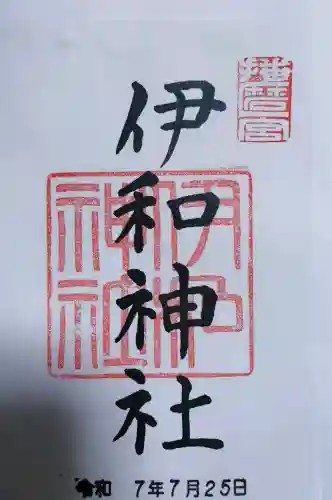 播磨宮
伊和神社
伊和
神社
令和 7年7月25日